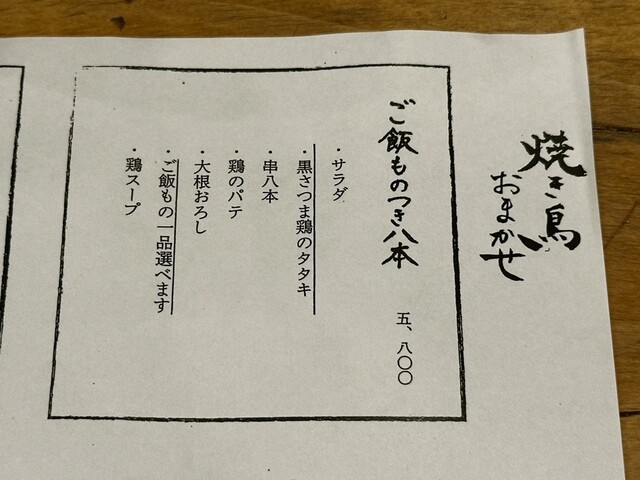 焼き鳥
おまかせ
ご飯ものつき八本
五、八〇〇
・サラダ
・黒さつま鶏のタタキ
・串八本
・鶏のパテ
・大根おろし
・ご飯もの一品選べます
・鶏スープ